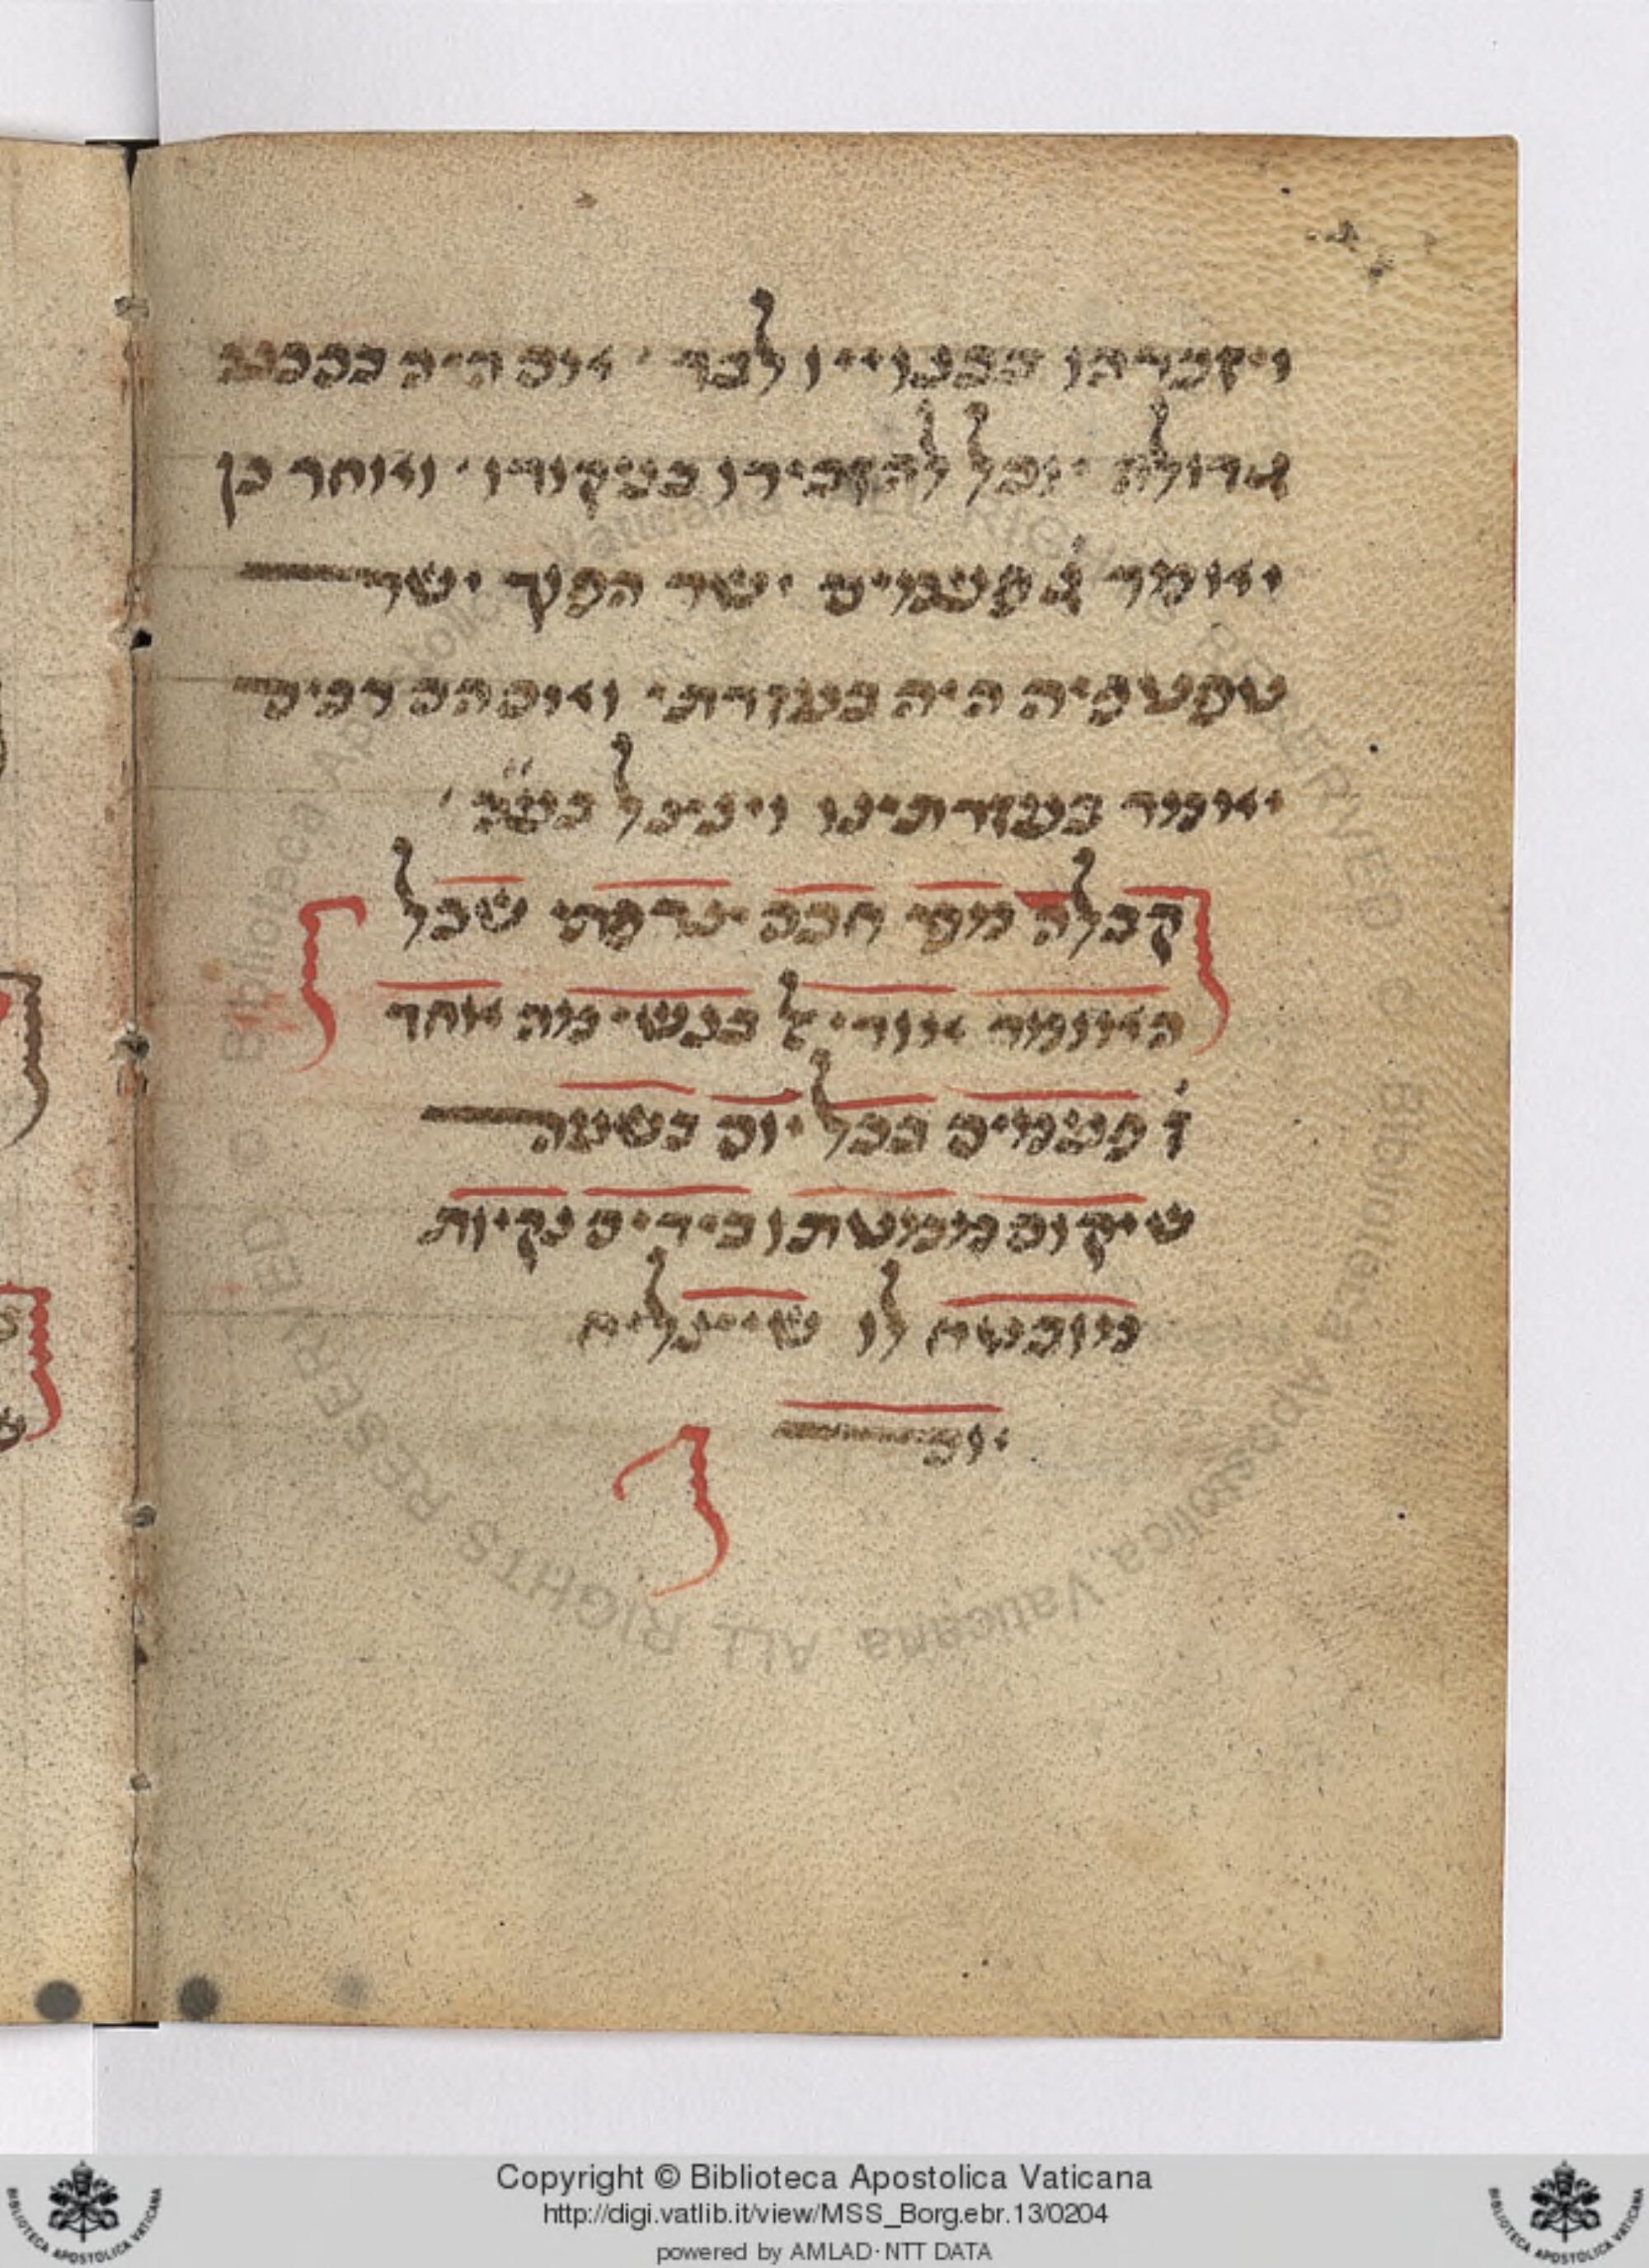 ויזכרהו בכנויו לבד אם היה בככנ
גדולה יוכל להזכירו בניקודו ואחר כן
יאמר ג פעמים ישר הפוך ישר
סייעתיה היה בעזרתי ואם הם רבים
יאמר בעזרתינו ויכוין לבש״ם
קבלה מפי חכם צרפתי שכל
האומר אודיל בנשימה אחד
ז פעמים בכל יום בשעה
שיקום ממטתו בידים נקיות
מובטח לו שיצליח
יום
Copyright © Biblioteca Apostolica Vaticana
http://digi.vatlib.it/view/MSS_Borg.ebr.13/0204
powered by AMLAD·NTT DATA